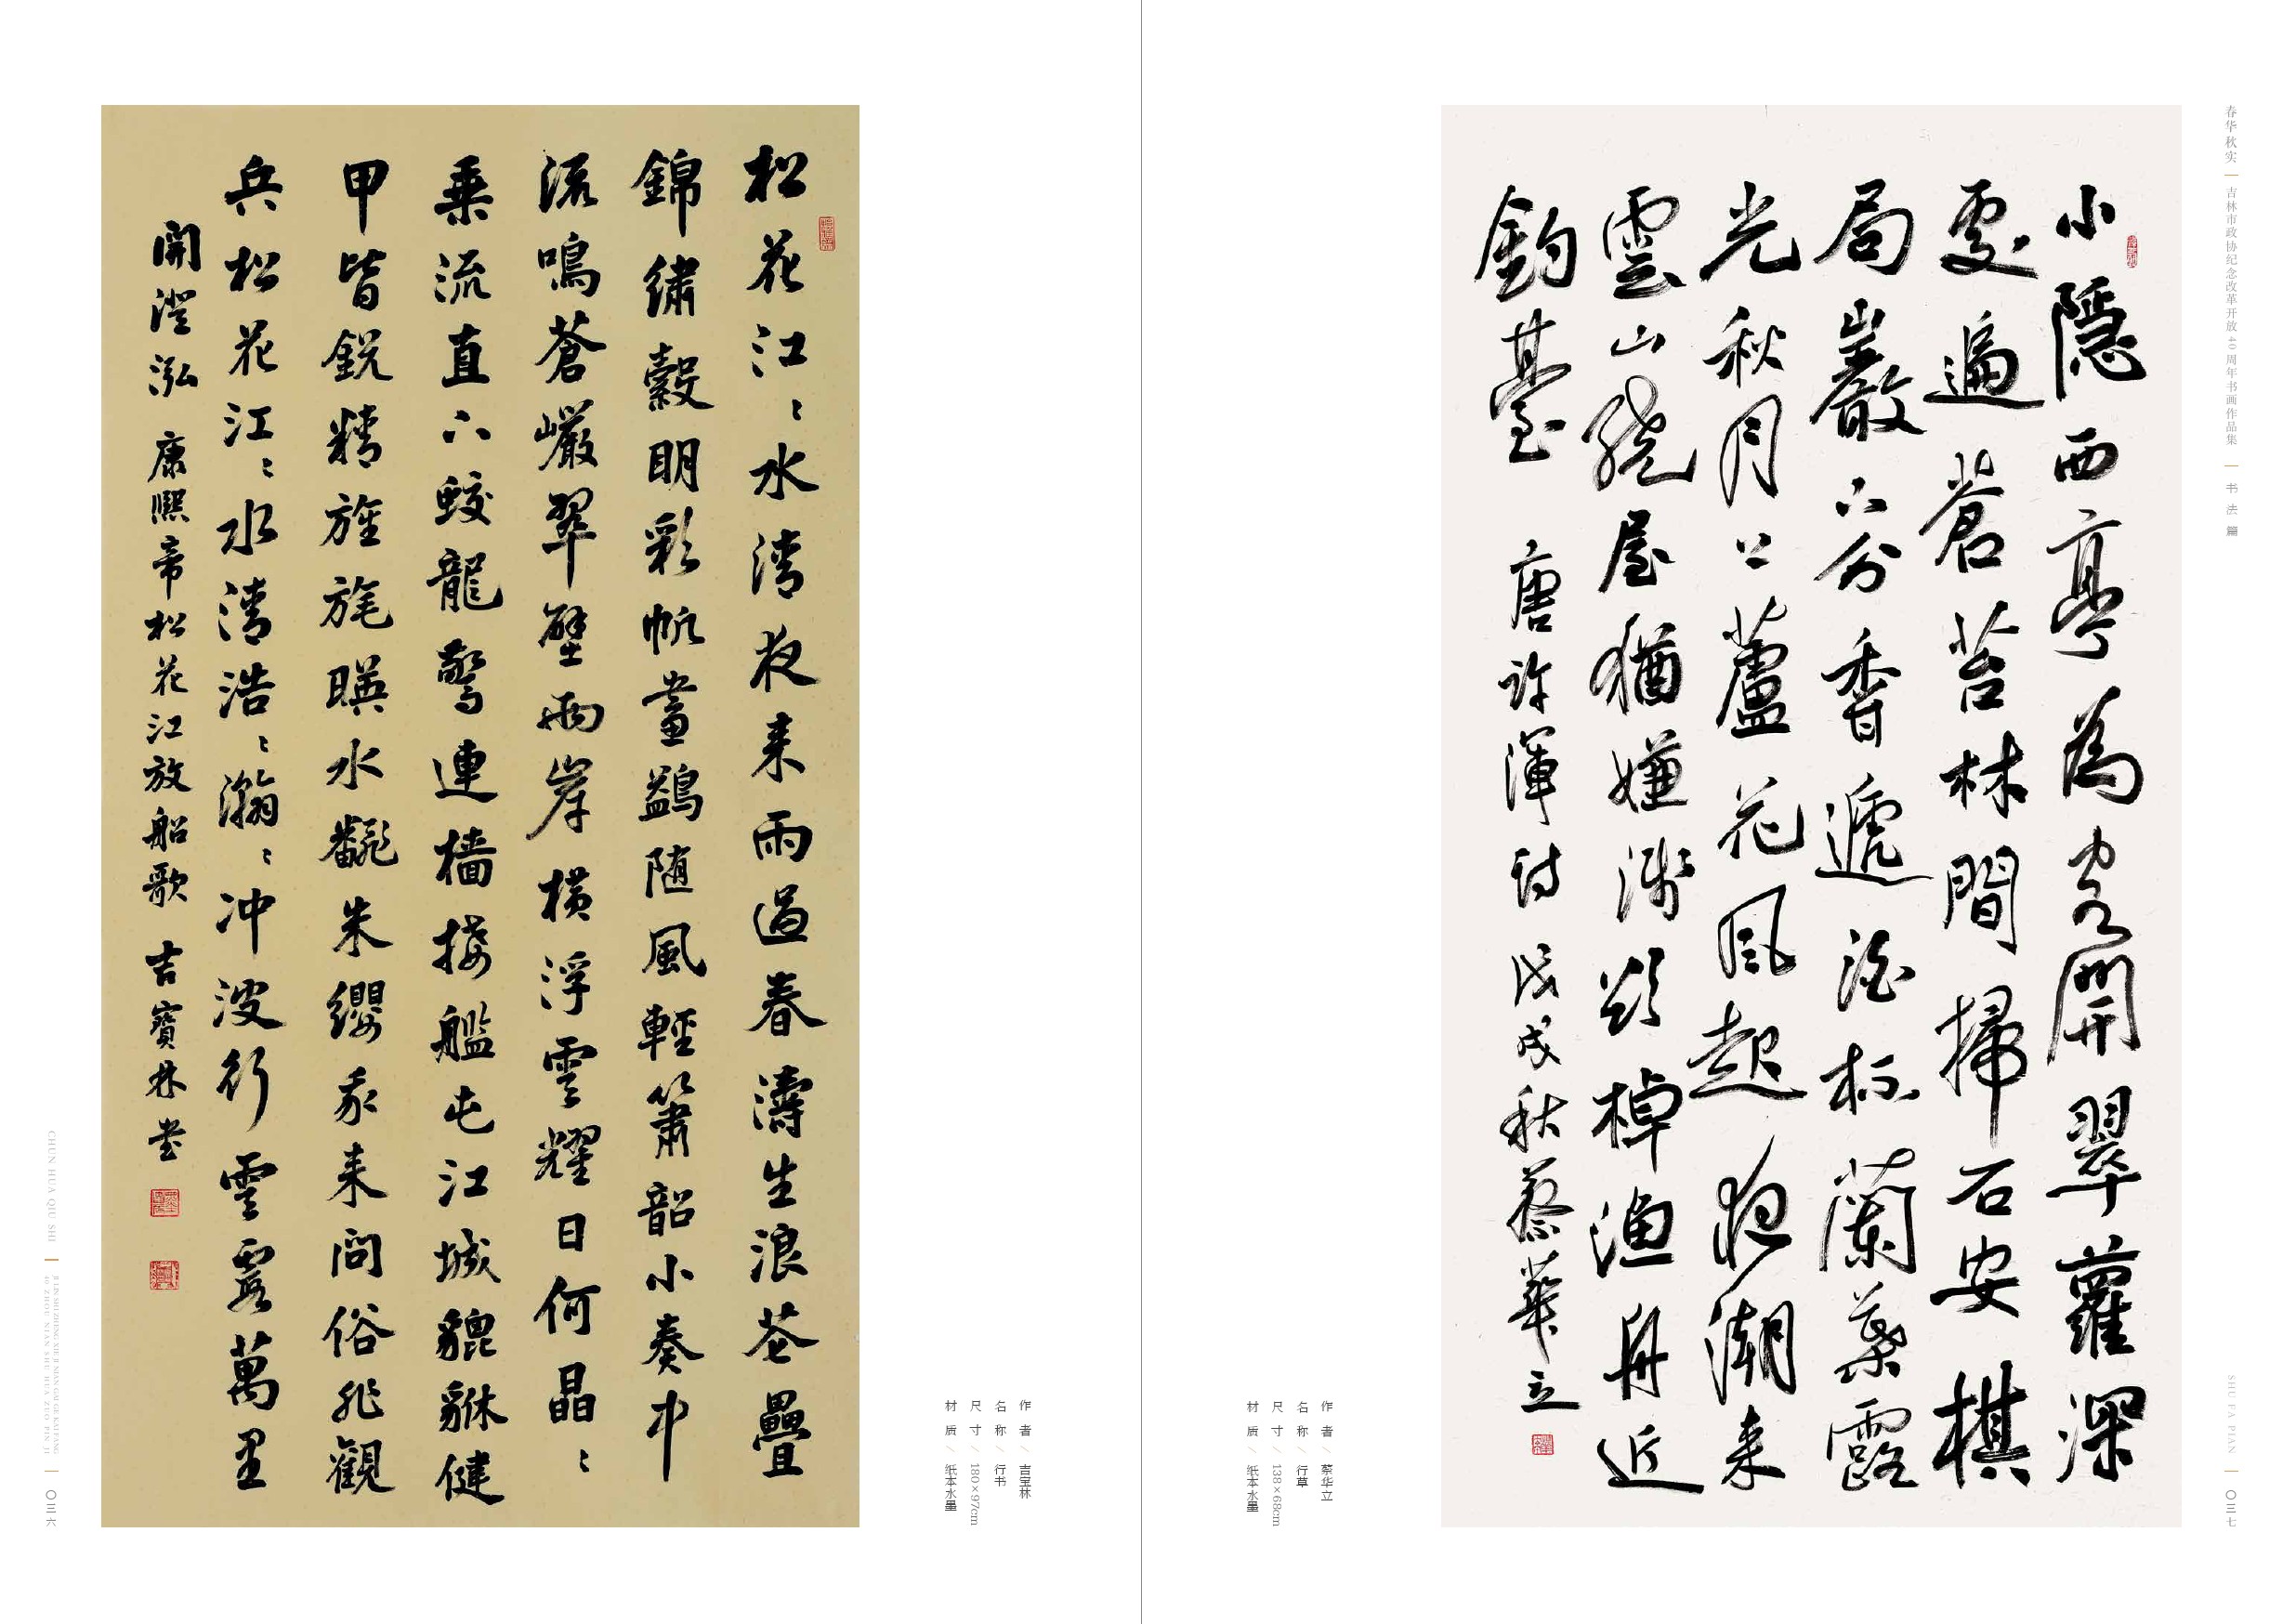 松花江〻水清夜来雨過春濤生浪花疊
錦繡縠明彩帆畫鷁随風輕簫韶小奏中
流鳴蒼巖翠壁兩岸橫浮雲耀日何晶〻
乗流直下蛟龍驚連檣接艦屯江城貔貅健
甲皆銳精旌旄暎水翻朱纓我来問俗非觀
兵松花江〻水清浩〻瀚〻冲波行雲霞萬里
開澄泓 康熙帝松花江放船歌 吉寶林書
作者 / 吉宝林
名称 / 行书
尺寸 / 180×97cm
材质 / 纸本水墨
CHUN HUA QIU SHI
JI LIN SHI ZHENG XIE JI NIAN GAI GE KAI FANG
40 ZHOU NIAN SHU HUA ZUO PIN JI
〇三六
春华秋实
吉林市政协纪念改革开放40周年书画作品集
书法篇
小隱西亭為客開翠蘿深
處遍蒼苔林間掃石安棋
局巖下分香遞酒杯蘭葉露
光秋月上蘆花風起夜潮来
雲山繞屋猶嫌淺欲棹漁舟近
釣臺 唐許渾詩 戊戌秋蔡華立
作者 / 蔡华立
名称 / 行草
尺寸 / 138×68cm
材质 / 纸本水墨
SHU FA PIAN
〇三七